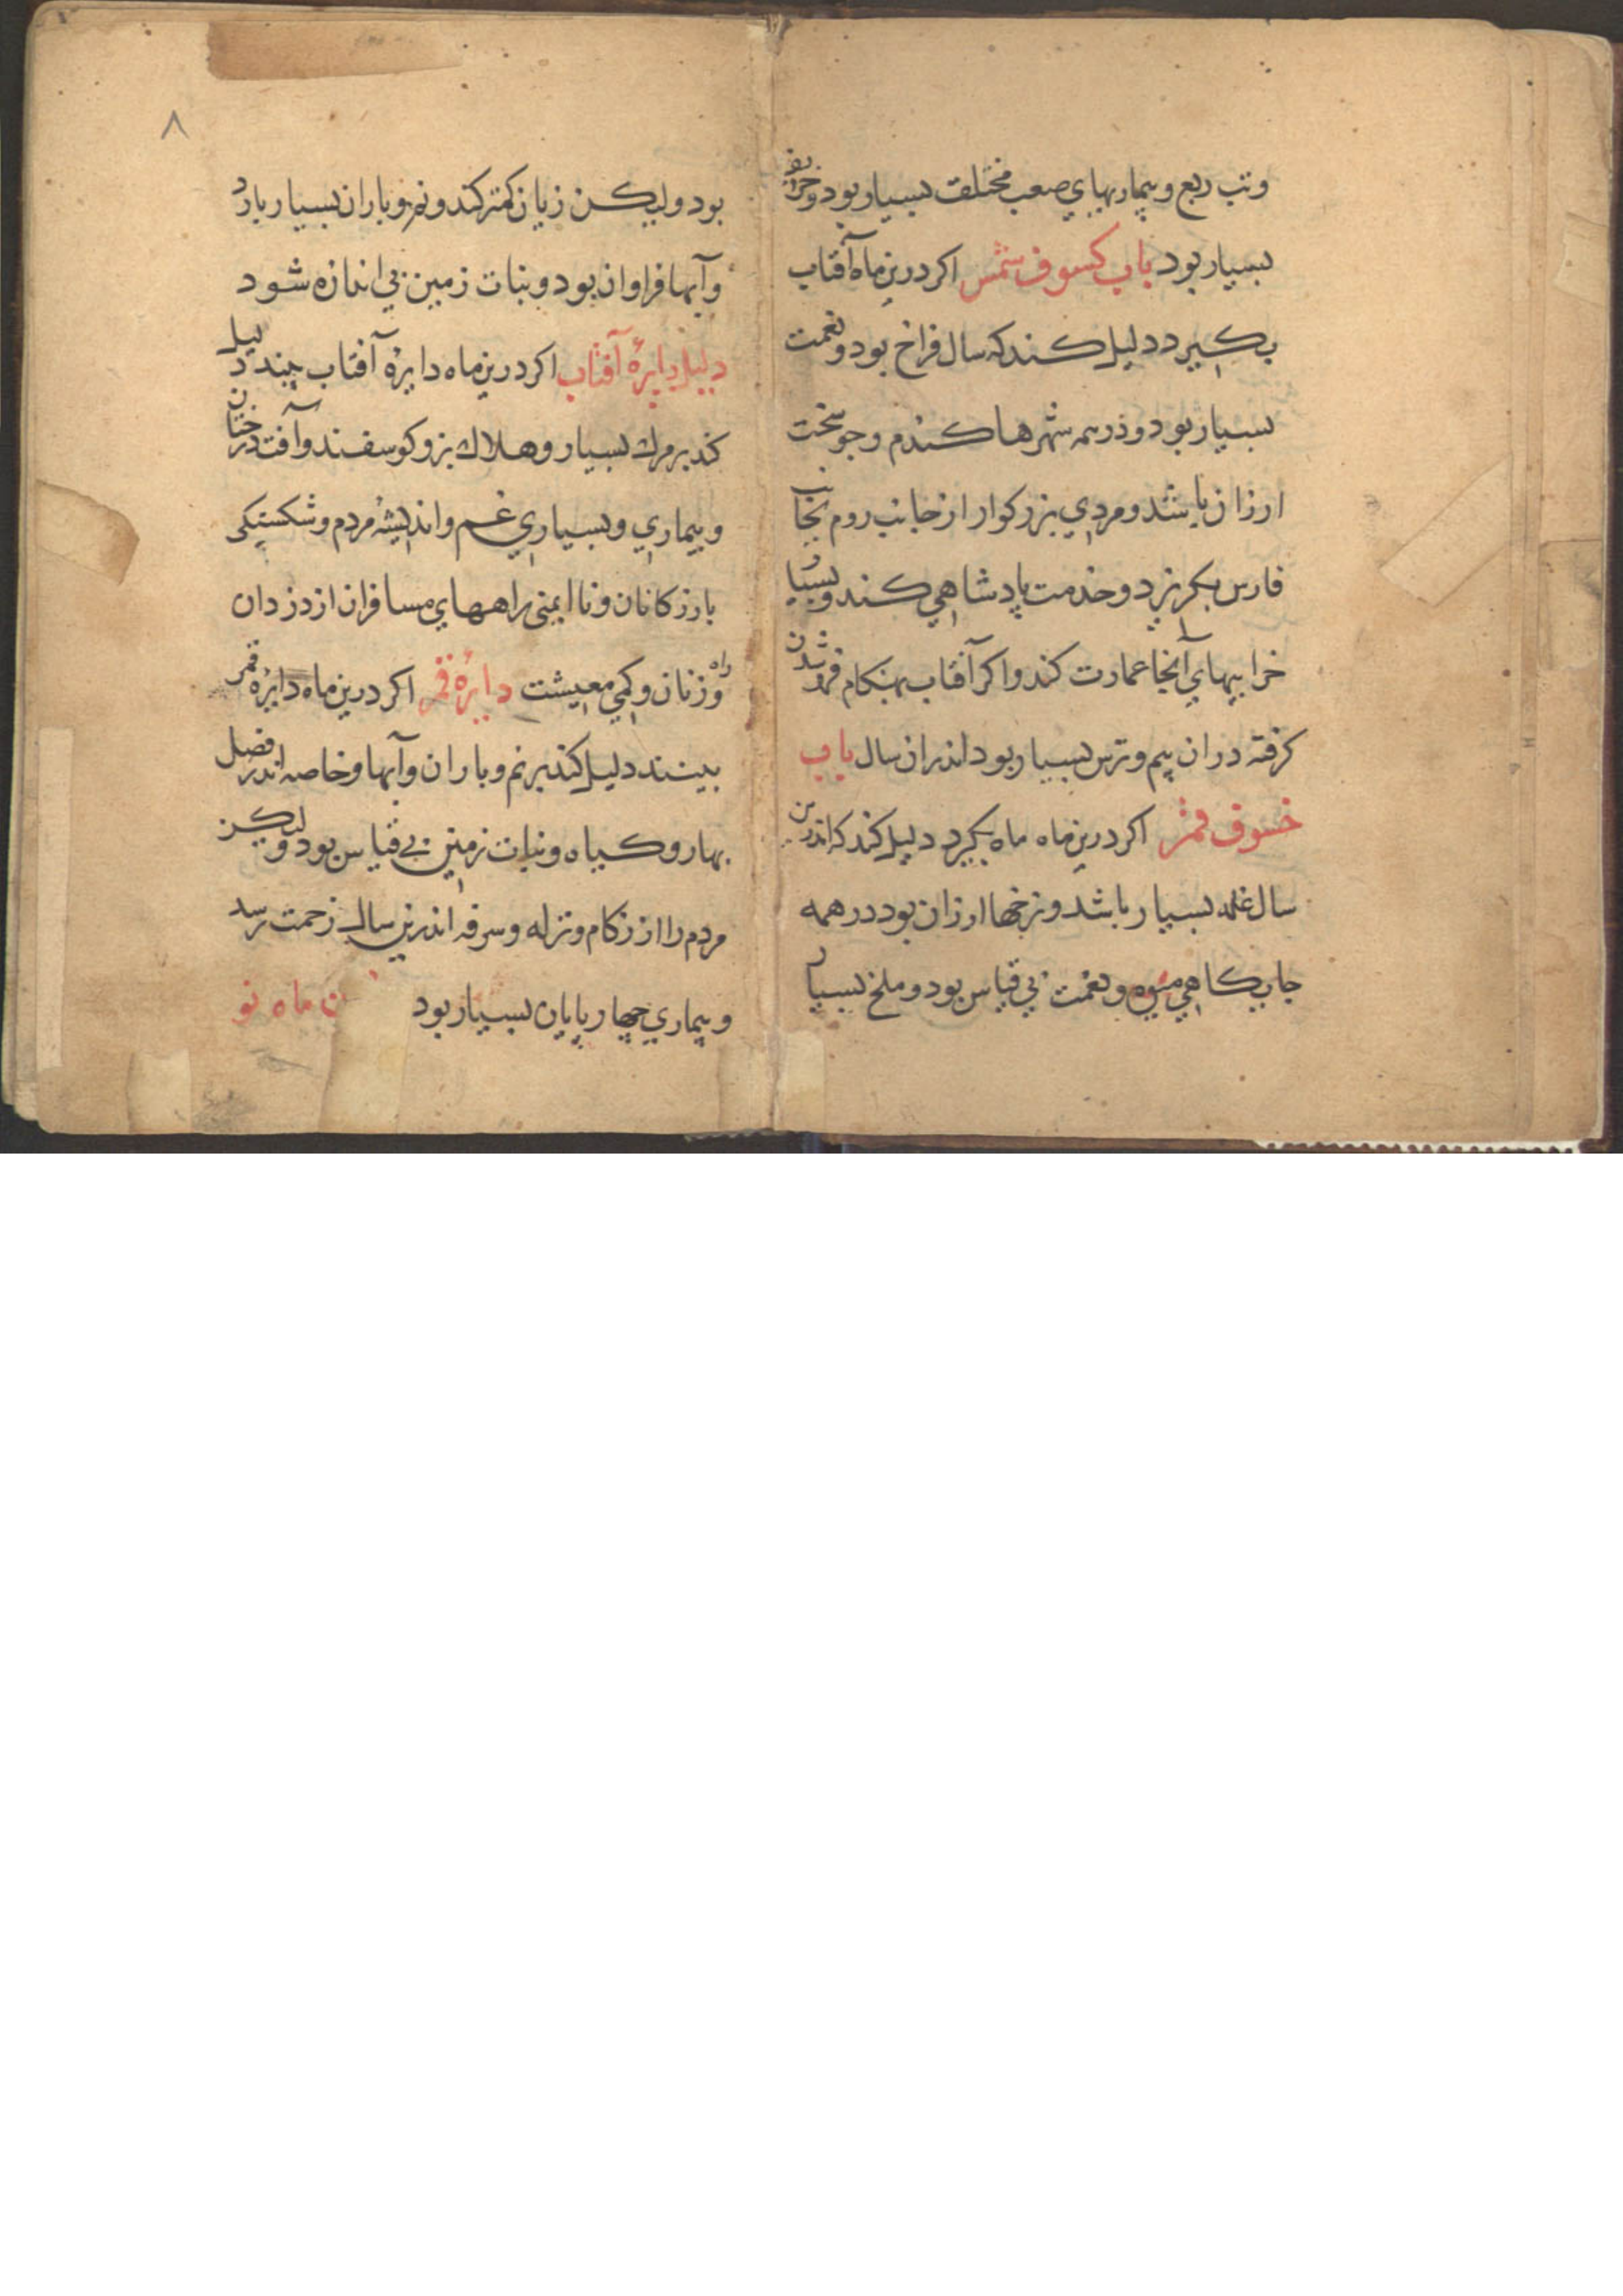 وتب ربع وبیماریهاي صعب مختلف بسیار بود وخرابیها
بسیار بود باب کسوف شمس اکر درین ماه آفتاب
بکیرد دلیل کند که سال فراخ بود ونعمت
بسیار بود وذر همه شهرها کندم وجو سخت
ارزان باشد ومردي بزرکوار از جانب روم بجانب
فارس بکریزد وخذمت پادشاهي کند وبسیار
خرابیهاي آنجا عمارت کند واکر آفتاب بهنکام فروشدن
کرفته دران بیم وترس بسیار بود اندران سال باب
خسوف قمر اکر درین ماه ماه بکیرد دلیل کند که اندرین
سال غله بسیار باشد ونرخها ارزان بود در همه
جایکاهي میوه ونعمت بي قیاس بود وملخ بسیار
۸
بود ولیکن زیان کمتر کند ونم وباران بسیار بارد
وآبها فراوان بود ونبات زمین بي اندازه شود
دلیل دایرۀ آفتاب اکر درین ماه دایرۀ آفتاب بیند دلیل
کند بر مرك بسیار وهلاك بز وکوسفند وآفت درختان
وبیماري وبسیاري غم واندیشۀ مردم وشکستیکی
بازرکانان وناایمنی راههاي مسافران از دزدان
راه وزنان وکمي معیشت دایرۀ قمر اکر درین ماه دایرۀ قمر
بینند دلیل کند بر نم وباران وآبها وخاصه اندر فصل
بهار وکیاه ونبات زمین بي قیاس بود ولیکن
مردم را از زکام ونزله وسرفه اندرین سال زحمت رسد
وبیماري چهارپایان بسیار بود ماه نو